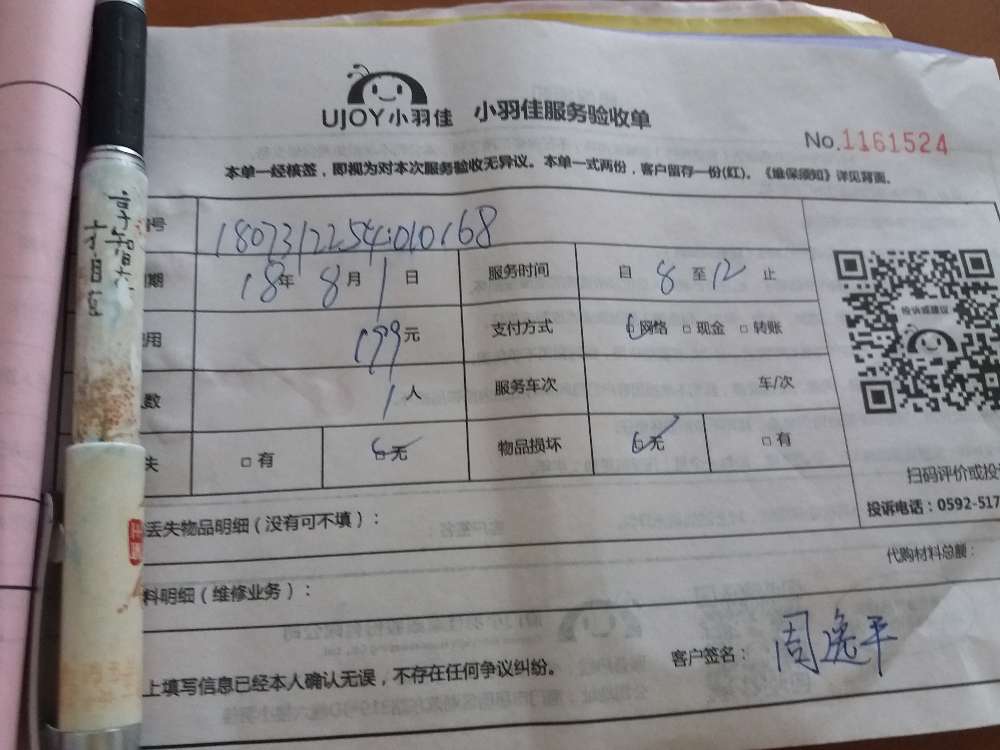 UJOY小羽佳 小羽佳服务验收单
No.1161524
本单一经核签，即视为对本次服务验收无异议。本单一式两份，客户留存一份(红)。《维保须知》详见背面。
号 180731225401068
期 18年 8月 1日 服务时间 自 8 至 12 止
用 199元 支付方式 网络 □现金 □转账
数 1人 服务车次 车/次
失 □有 无 物品损坏 无 □有
投诉或建议
扫码评价或投
投诉电话：0592-517
丢失物品明细（没有可不填）：
代购材料总额：
料明细（维修业务）：
客户签名： 周逸平
上填写信息已经本人确认无误，不存在任何争议纠纷。